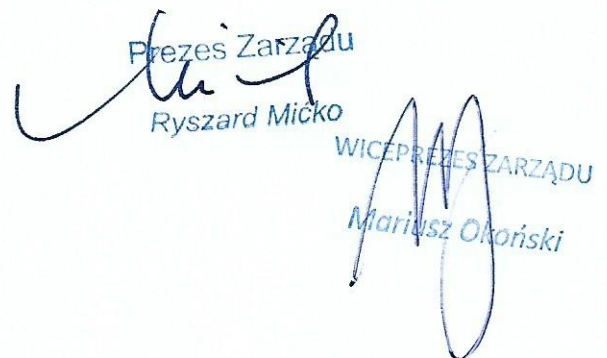 Prezes Zarządu
Ryszard Mićko
WICEPREZES ZARZĄDU
Mariusz Okoński